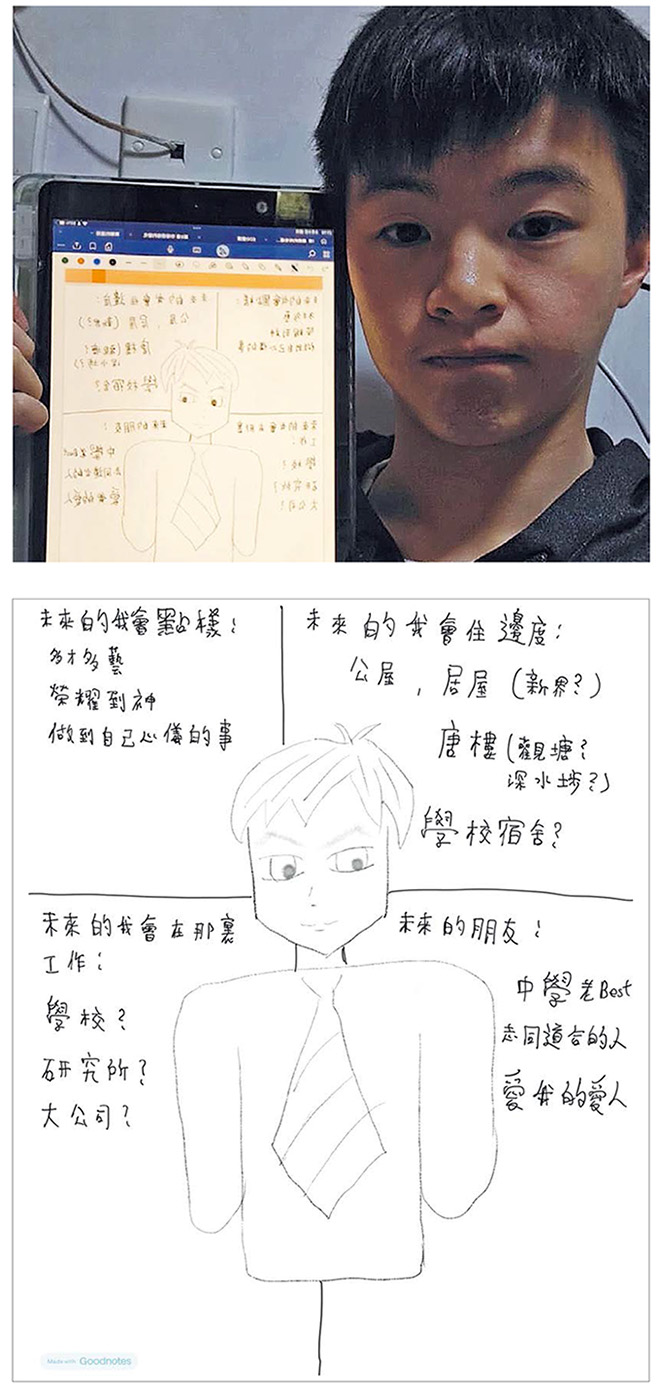 未來的我會點樣：
多才多藝
榮耀到神
做到自己心儀的事
未來的我會住邊度：
公屋，居屋（新界？）
唐樓（觀塘？
深水埗？）
學校宿舍？
未來的我會在那裏
工作：
學校？
研究所？
大公司？
未來的朋友：
中學老Best
志同道合的人
愛我的愛人
Made with Goodnotes